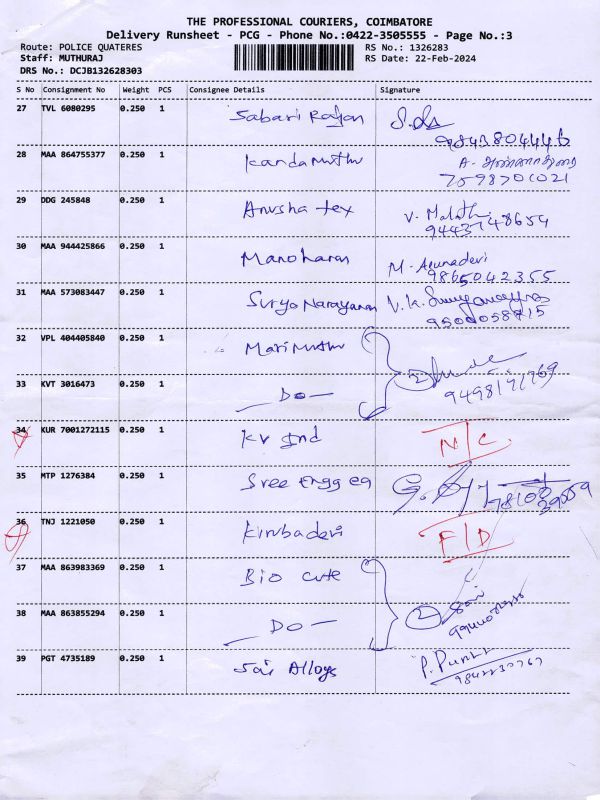 THE PROFESSIONAL COURIERS, COIMBATORE
Delivery Runsheet - PCG - Phone No.:0422-3505555 - Page No.:3
Route: POLICE QUATERES RS No.: 1326283
Staff: MUTHURAJ RS Date: 22-Feb-2024
DRS No.: DCJB132628303
S No Consignment No Weight PCS Consignee Details Signature
27 TVL 6080295 0.250 1 Sabari Rajan
9843804446
28 MAA 864755377 0.250 1 Kandamuthu
7598701021
29 DDG 245848 0.250 1 Anusha tex V. Malathi
9443748654
30 MAA 944425866 0.250 1 Manoharan M. Arunadevi
9865042355
31 MAA 573083447 0.250 1 Surya Narayanan
9500058715
32 VPL 404405840 0.250 1 Marimuthu
2
33 KVT 3016473 0.250 1 — Do —
34 KUR 7001272115 0.250 1 KV Ind N/C.
35 MTP 1276384 0.250 1 Sree Engg eq
36 TNJ 1221050 0.250 1 Kirubadevi F/D
37 MAA 863983369 0.250 1 Bio cute
2
38 MAA 863855294 0.250 1 — Do —
39 PGT 4735189 0.250 1 Sai Alloys
9842230767